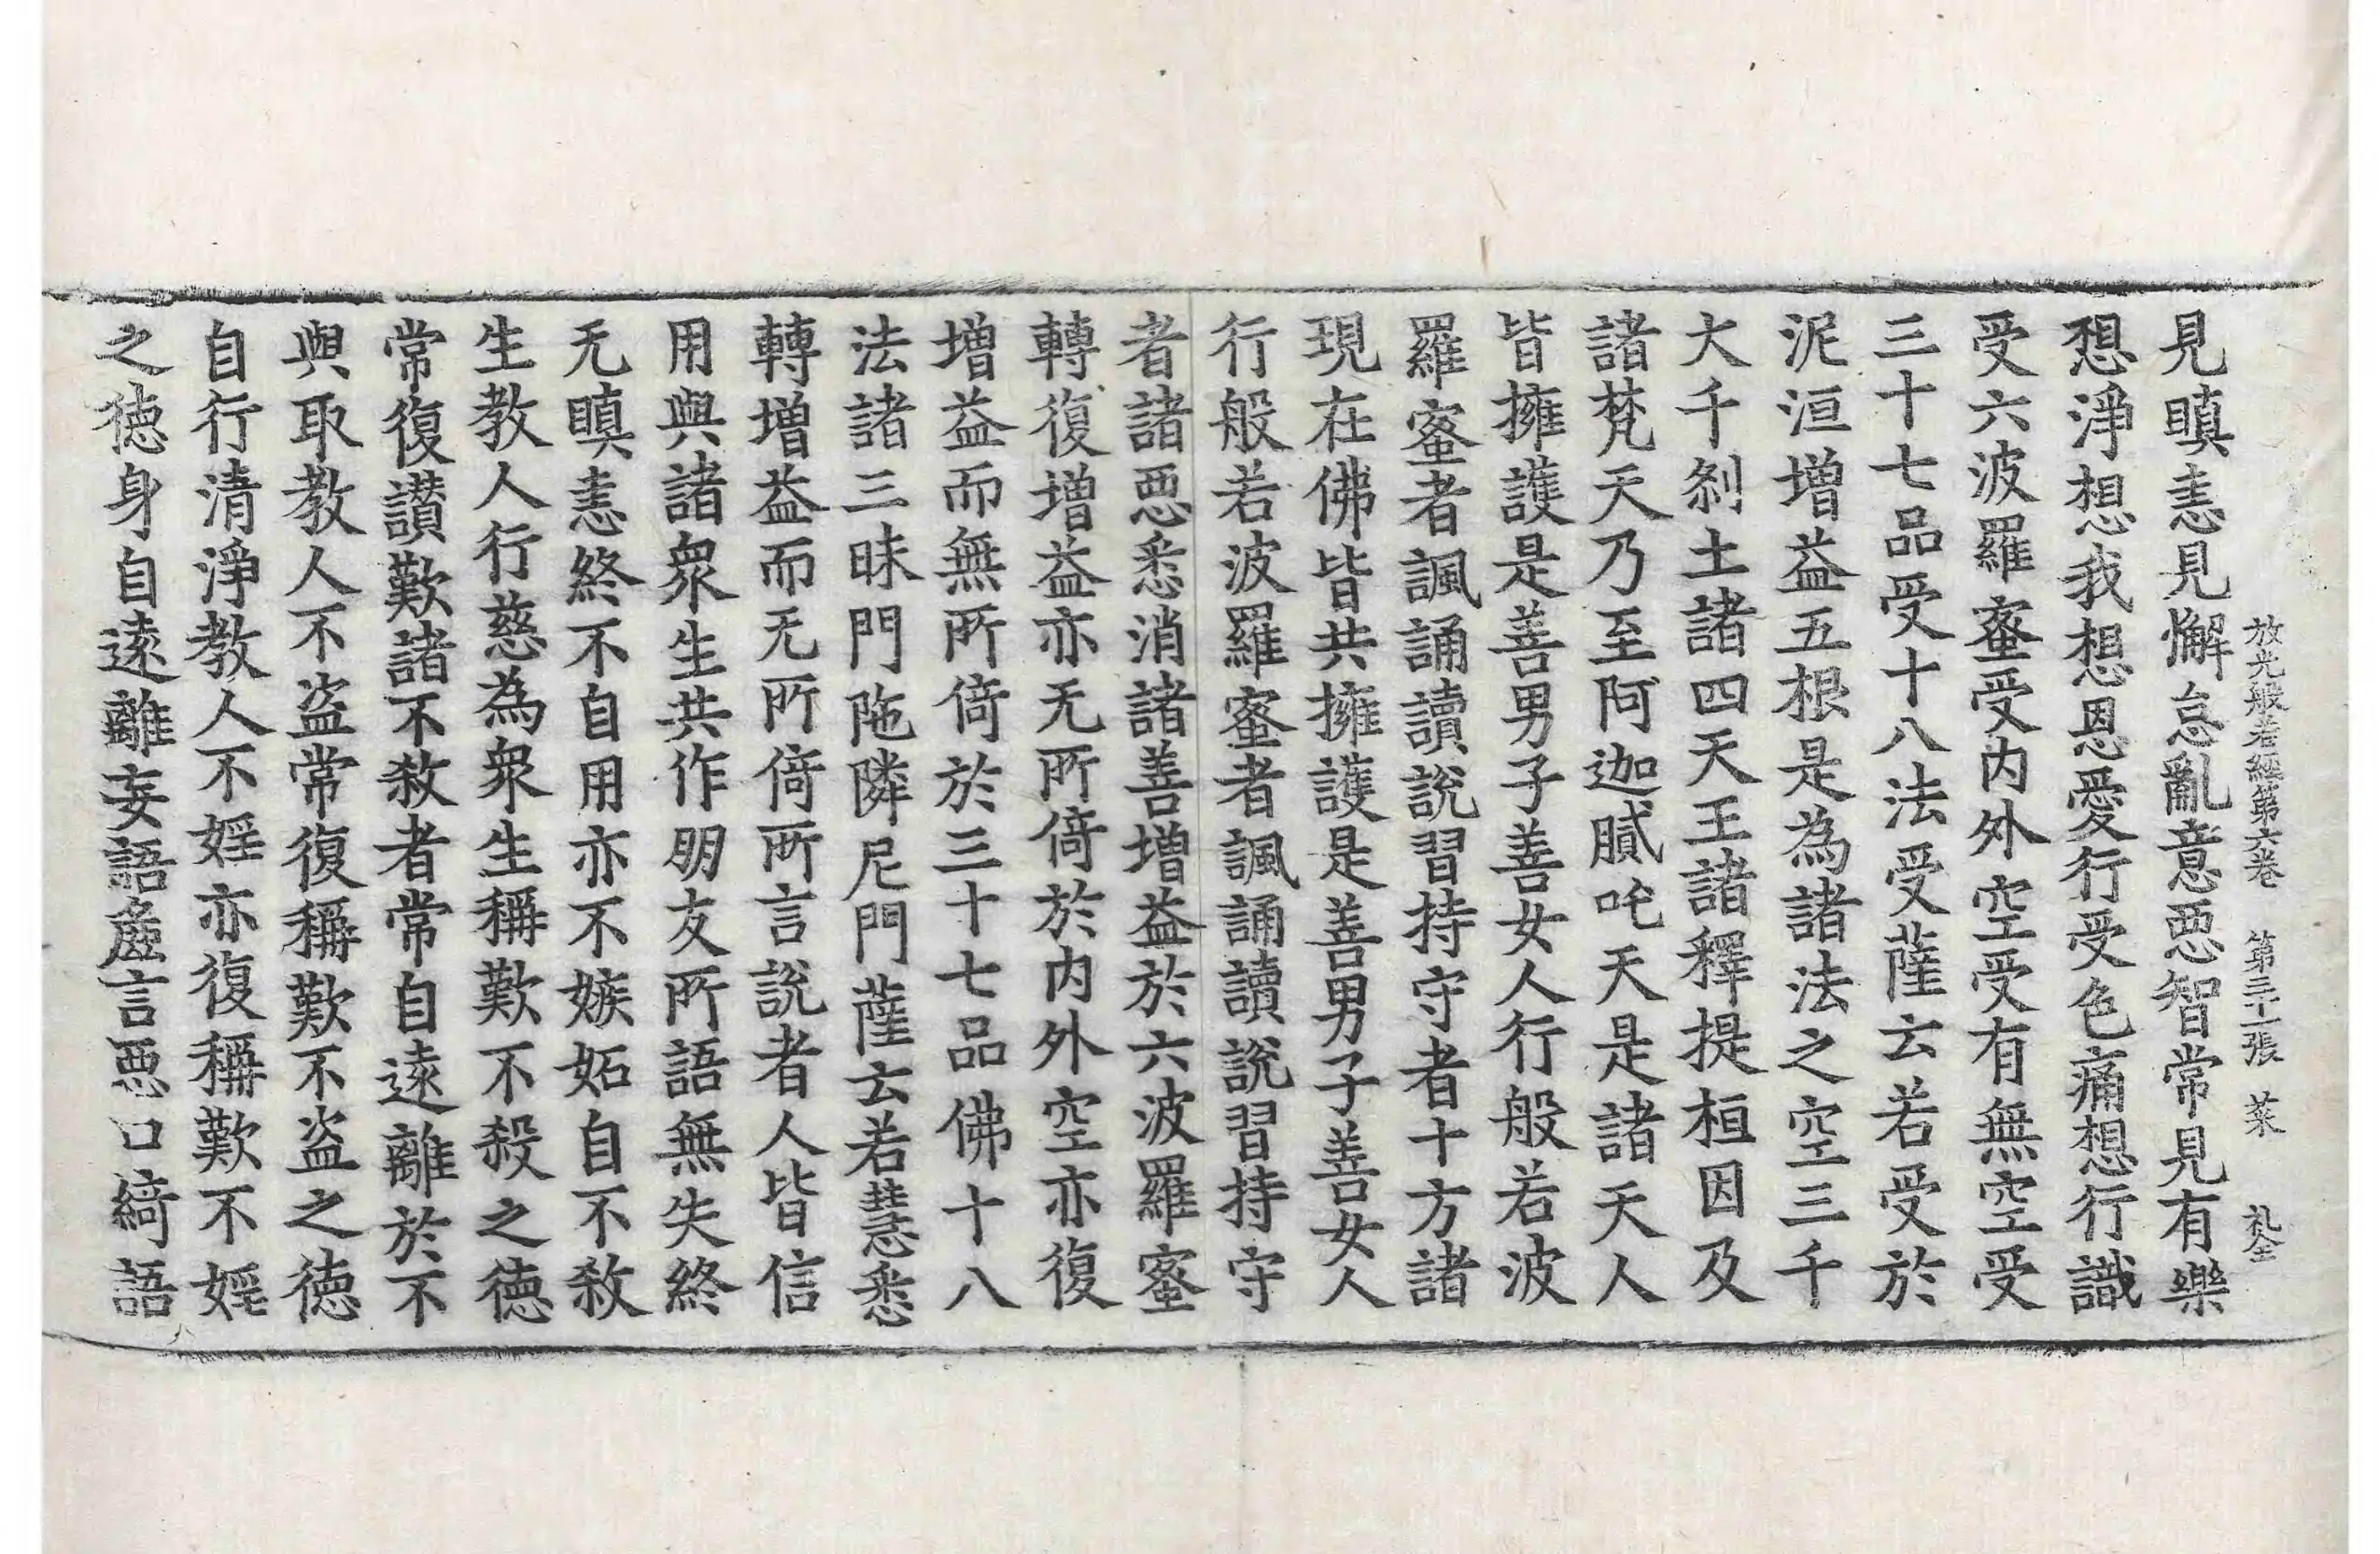 放光般若經第六卷　第三十一張　菜　礼全
見瞋恚見懈怠亂意惡智常見有樂
想淨想我想恩愛行受色痛想行識
受六波羅蜜受内外空受有無空受
三十七品受十八法受薩云若受於
泥洹增益五根是為諸法之空三千
大千剎土諸四天王諸釋提桓因及
諸梵天乃至阿迦膩吒天是諸天人
皆擁護是善男子善女人行般若波
羅蜜者諷誦讀說習持守者十方諸
現在佛皆共擁護是善男子善女人
行般若波羅蜜者諷誦讀說習持守
者諸惡悉消諸善增益於六波羅蜜
轉復增益亦无所倚於内外空亦復
增益而無所倚於三十七品佛十八
法諸三昧門陁隣尼門薩云若慧悉
轉增益而无所倚所言說者人皆信
用與諸衆生共作朋友所語無失終
无瞋恚終不自用亦不嫉妬自不煞
生教人行慈為衆生稱歎不殺之德
常復讃歎諸不煞者常自遠離於不
與取教人不盜常復稱歎不盜之德
自行清淨教人不婬亦復稱歎不婬
之德身自遠離妄語麁言惡口綺語